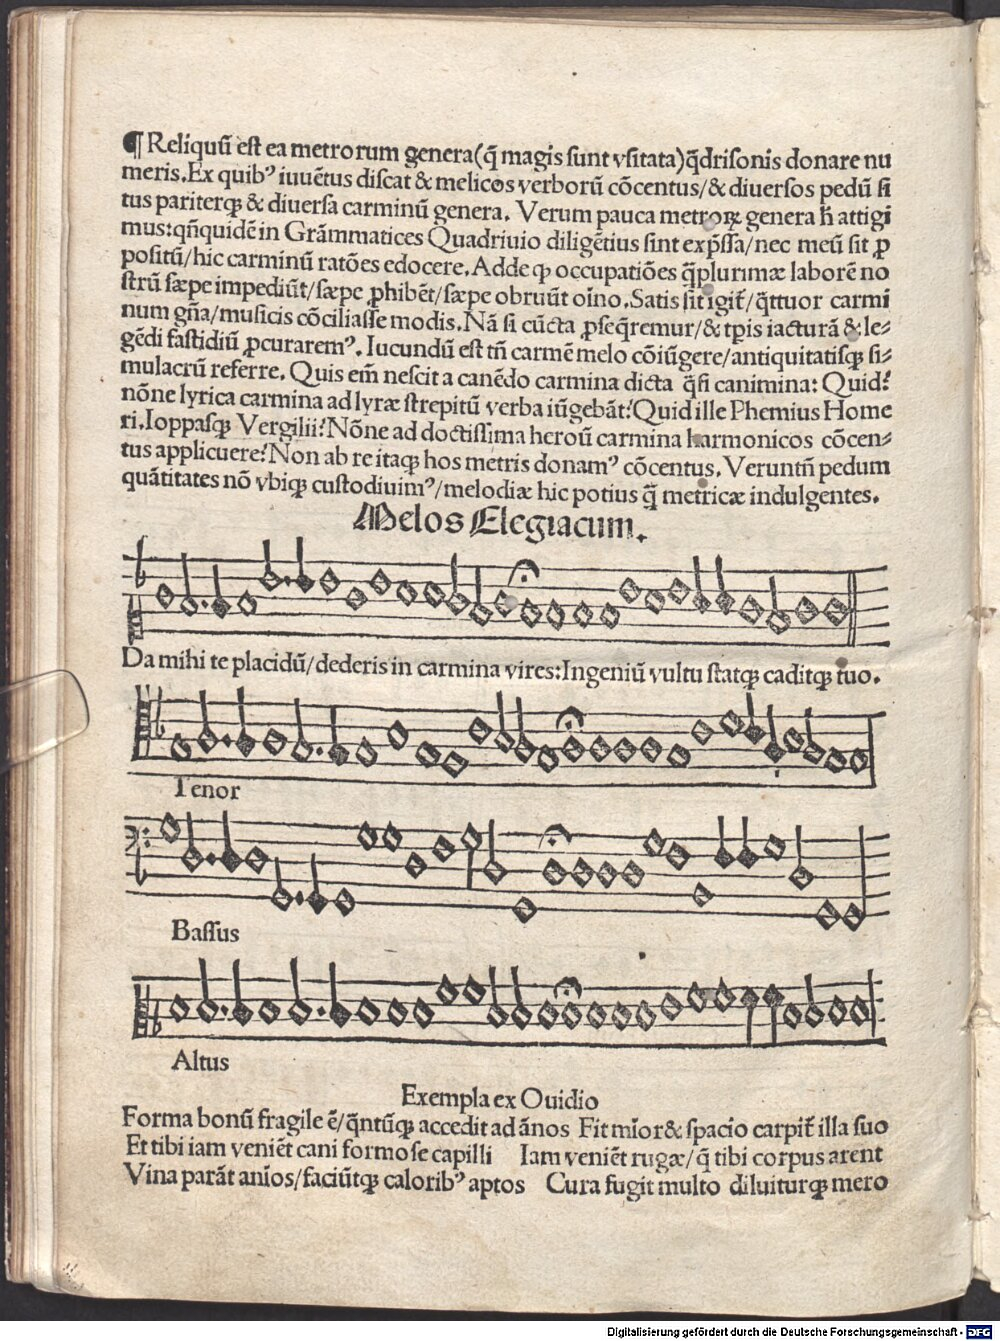 ¶ Reliquū est ea metrorum genera(q̄ magis sunt vsitata)q̄drisonis donare nu
meris.Ex quibꝰ iuuētus discat & melicos verborū cōcentus/& diuersos pedū si
tus pariterqꝫ & diuersa carminū genera. Verum pauca metroꝝ genera h̄ attigi
mus:qn̄quidē in Grāmmatices Quadriuio diligētius sint exp̄ssa/nec meū sit ꝓ
positū/hic carminū ratōes edocere.Adde ꝙ occupatiōes q̄plurimæ laborē no
strū sæpe impediūt/sæpe ꝓhibēt/sæpe obruūt oīno.Satis sit igit̄/q̄ttuor carmi
num gn̄a/musicis cōciliasse modis.Nā si cūcta ꝓseq̄remur/& tp̄is iacturā & le⸗
gēdi fastidiū ꝓcuraremꝰ. Iucundū est tn̄ carmē melo cōiūgere/antiquitatisqꝫ si⸗
mulacrū referre. Quis em̄ nescit a canēdo carmina dicta q̄si canimina: Quid?
nōne lyrica carmina ad lyræ strepitū verba iūgebāt? Quid ille Phemius Home
ri.Ioppasqꝫ Vergilii? Nōne ad doctissima heroū carmina harmonicos cōcen⸗
tus applicuere? Non ab re itaqꝫ hos metris donamꝰ cōcentus. Veruntn̄ pedum
quātitates nō vbiqꝫ custodiuimꝰ/melodiæ hic potius q̄ metricæ indulgentes.
Melos Elegiacum.
Da mihi te placidū/dederis in carmina vires:Ingeniū vultu statqꝫ caditqꝫ tuo.
Tenor
Bassus
Altus
Exempla ex Ouidio
Forma bonū fragile ē/q̄ntūqꝫ accedit ad ānos Fit mīor & spacio carpit̄ illa suo
Et tibi iam veniēt cani formose capilli Iam veniēt rugæ/q̄ tibi corpus arent
Vina parāt anīos/faciūtqꝫ caloribꝰ aptos Cura fugit multo diluiturqꝫ mero
Digitalisierung gefördert durch die Deutsche Forschungsgemeinschaft - DFG